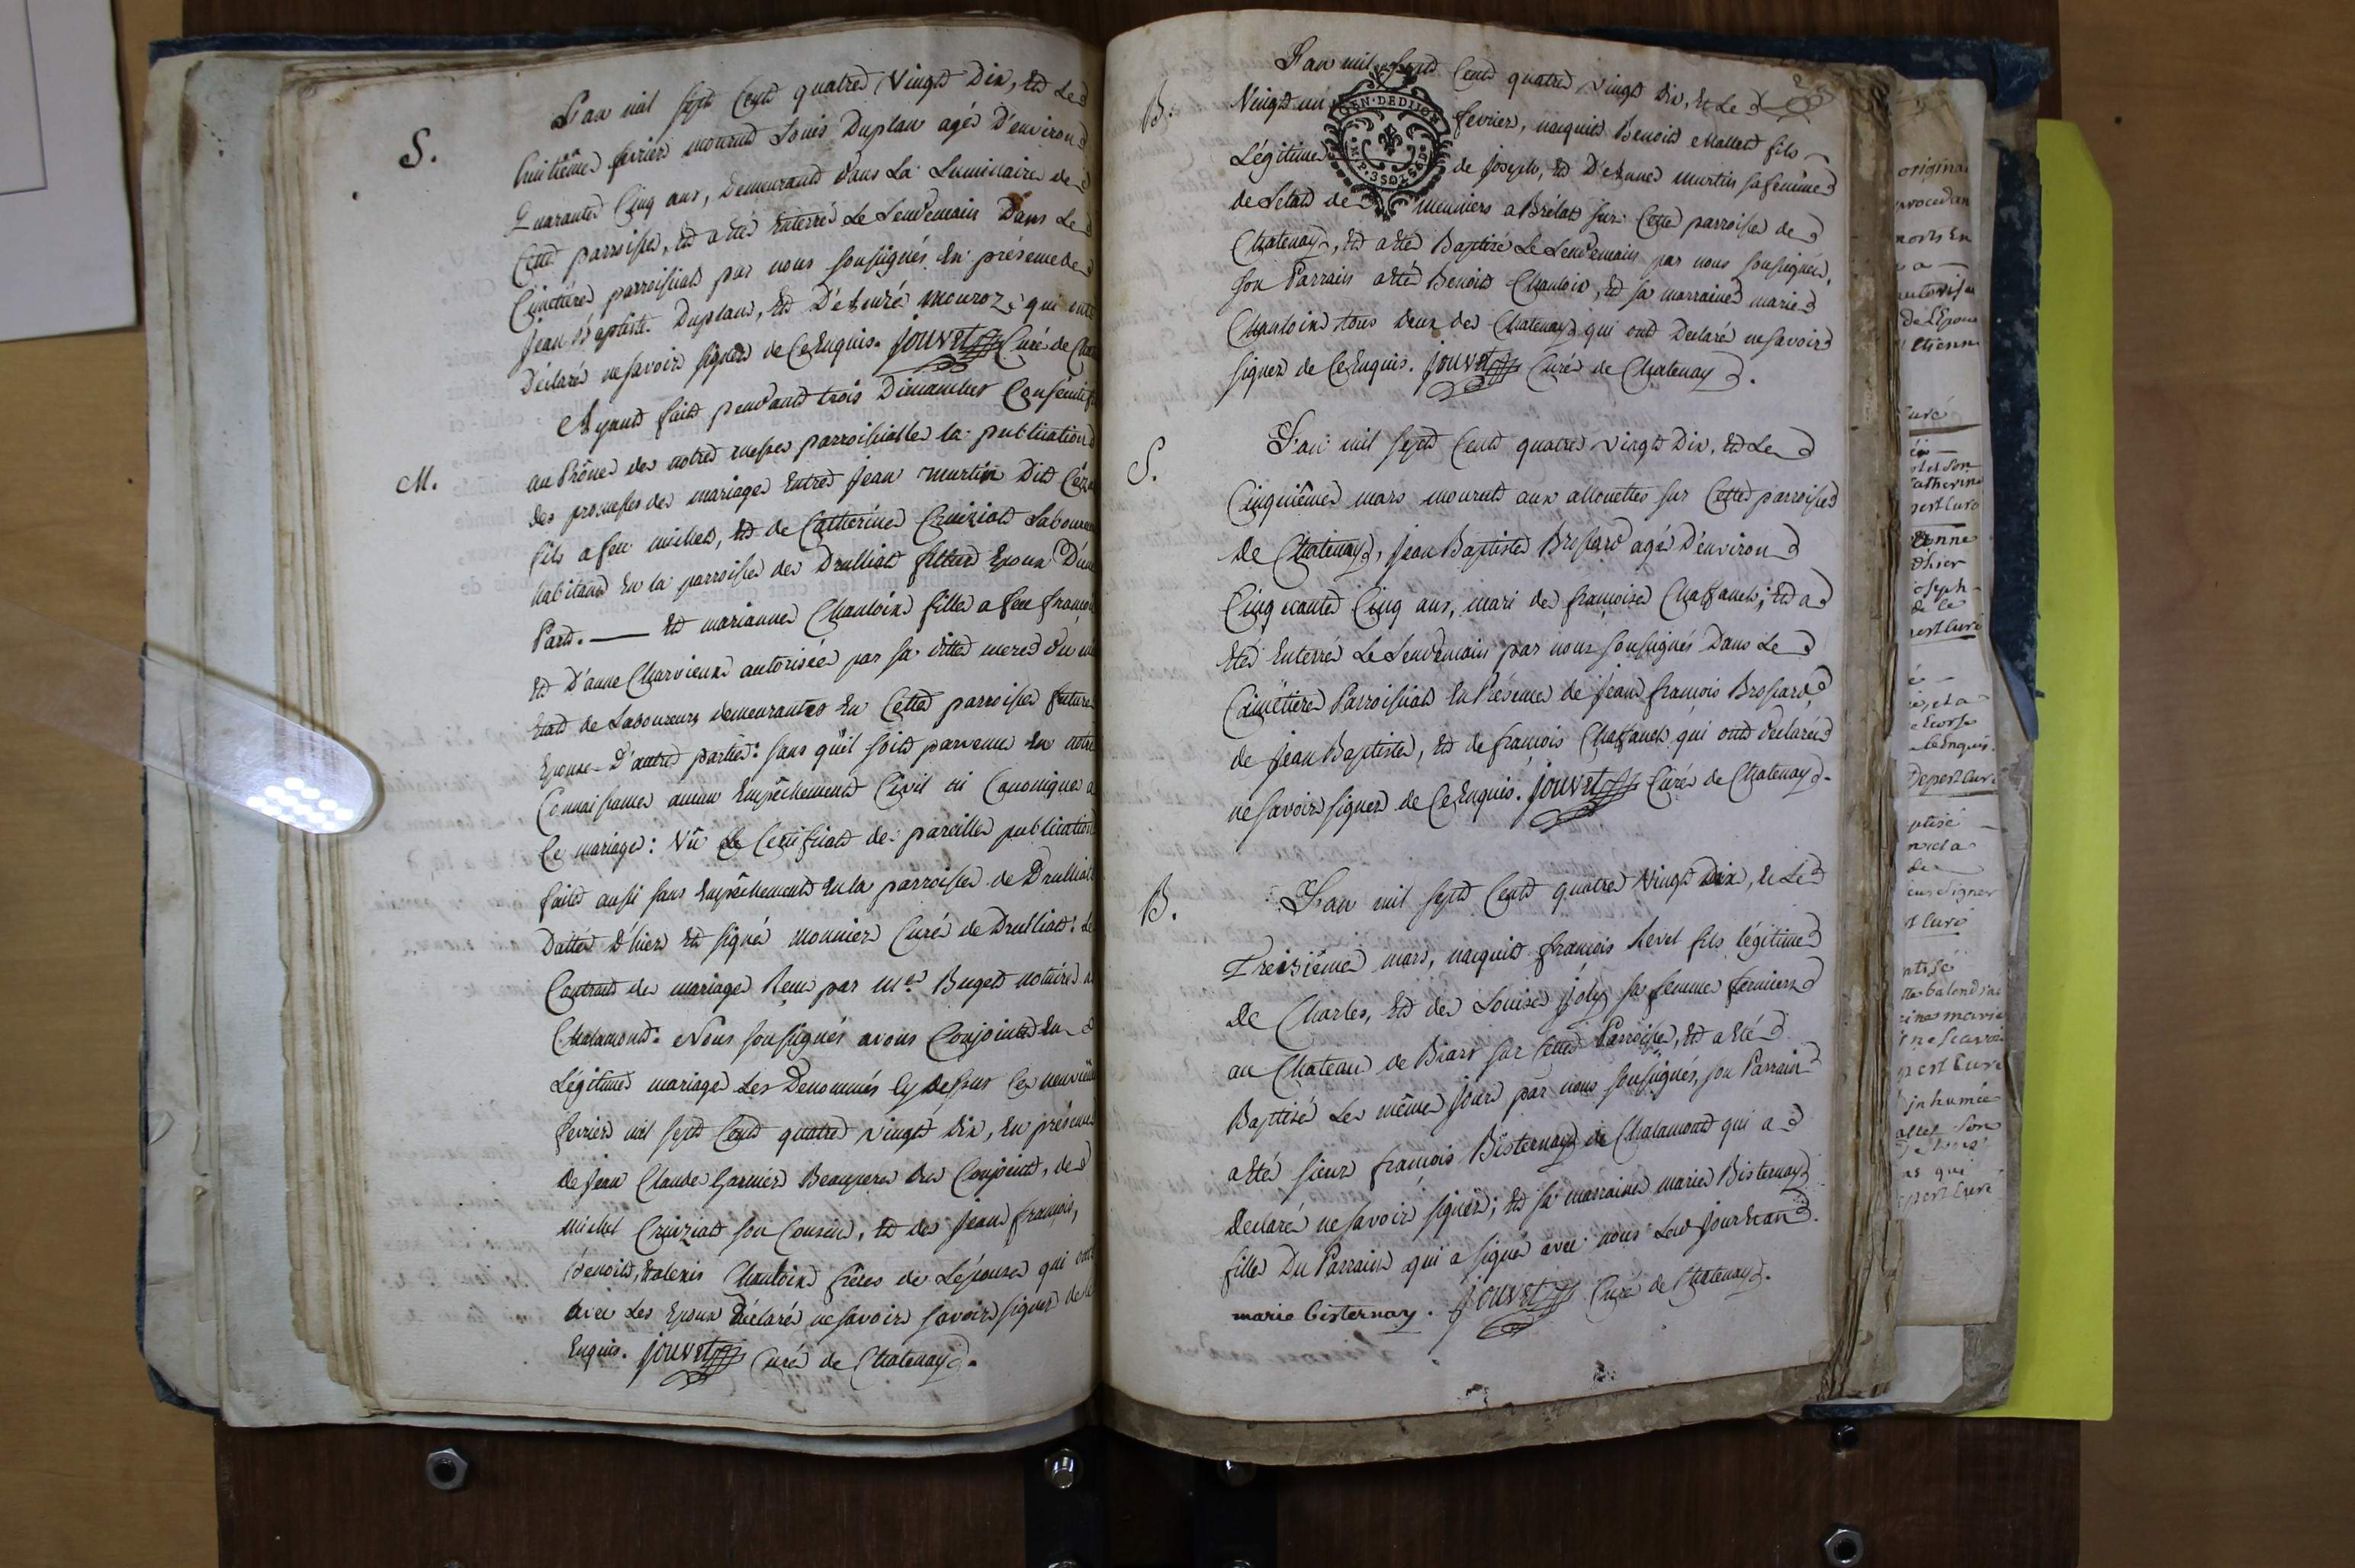 S.
L'an mil sept Cent quatre Vingt Dix, Et Le
huitième fevrier mourut Louis Duplan agé D'environ
Quarante Cinq ans, Demeurant dans La Luminaire de
Cette parroisse, Et a été Enterré Le Lendemain Dans Le
Cimetiére parroissial par nous soussigné En présence de
Jean Baptiste Duplan, Et D'André Monroz qui ont
Déclaré ne savoir signer de Ce Enquis. Jouvet Curé de
M.
Ayant fait pendant trois Dimanches Consécutifs
au Prône de notre messe parroissialle la publication
des promesses de mariage Entre Jean Martin Dit
fils a feu michel, Et de Catherine Cruiziat Laboureur
habitant En la parroisse de Druillat futur Epoux D'une
Part. — Et marianne Chanloin fille a feu françois
Et D'anne Charvieux autorisée par sa ditte mere du
Etat de Laboureurs demeurantes En Cette parroisse future
Epouse D'autre partie: sans qu'il soit parvenu En notre
Connaissance aucun Empêchement Civil ni Canonique a
Ce mariage: Vû Le Certificat de pareille publication
faite aussi sans Empêchement En la parroisse de Druillat
Datté D'hier Et signé Monnier Curé de Druillat: Le
Contrat de mariage Reçu par Me Buget notaire a
Chalamont: Nous soussigné avons Conjoint En
Légitime mariage Les Denommés Cy Dessus Ce neuvième
fevrier mil sept Cent quatre vingt dix, En présence
de Jean Claude Garnier Beaupere du Conjoint, de
michel Cruiziat son Cousin, Et de Jean françois,
Benoit, Et alexis Chanloin frères de L'épouse qui ont
avec Les Epoux Déclaré ne savoir savoir signer de Ce
Enquis. Jouvet Curé de Chatenay.
B.
L'an mil sept Cent quatre Vingt Dix, Et Le
Vingt un fevrier, naquit Benoit Mallet fils
Légitime de Joseph, Et D'Anne Martin sa femme
de L'etat de meuniers a Brélat sur Cette parroisse de
Chatenay, Et a été Baptizé Le Lendemain par nous soussigné,
son Parrain a été Benoit Chanloin, Et sa marraine marie
Chanloin tous deux de Chatenay qui ont Declaré ne savoir
signer de Ce Enquis. Jouvet Curé de Chatenay.
S.
L'an mil sept Cent quatre vingt Dix, Et Le
Cinquième mars mourut aux allouettes sur Cette parroisse
de Chatenay, Jean Baptiste Brossard agé D'environ
Cinquante Cinq ans, mari de françoise Chaffanel; Et a
Eté Enterré Le Lendemain par nous soussigné Dans Le
Cimetière Parroissial En Présence de Jean françois Brossard,
de Jean Baptiste, Et de françois Chaffanel qui ont déclaré
ne savoir signer de Ce Enquis. Jouvet Curé de Chatenay.
B.
L'an mil sept Cent quatre Vingt Dix, Et Le
Treizième mars, naquit françois Revel fils légitime
De Charles, Et de Louise Joly sa femme fermiers
au Chateau de Biars sur Cette Parroisse, Et a été
Baptizé Le même jour par nous soussigné, son Parrain
a été sieur françois Bisternay de Chalamont qui a
Declaré ne savoir signer; Et sa marraine marie Bisternay
fille Du Parrain qui a signé avec nous Led jour Et an.
marie bisternay. Jouvet Curé de Chatenay.